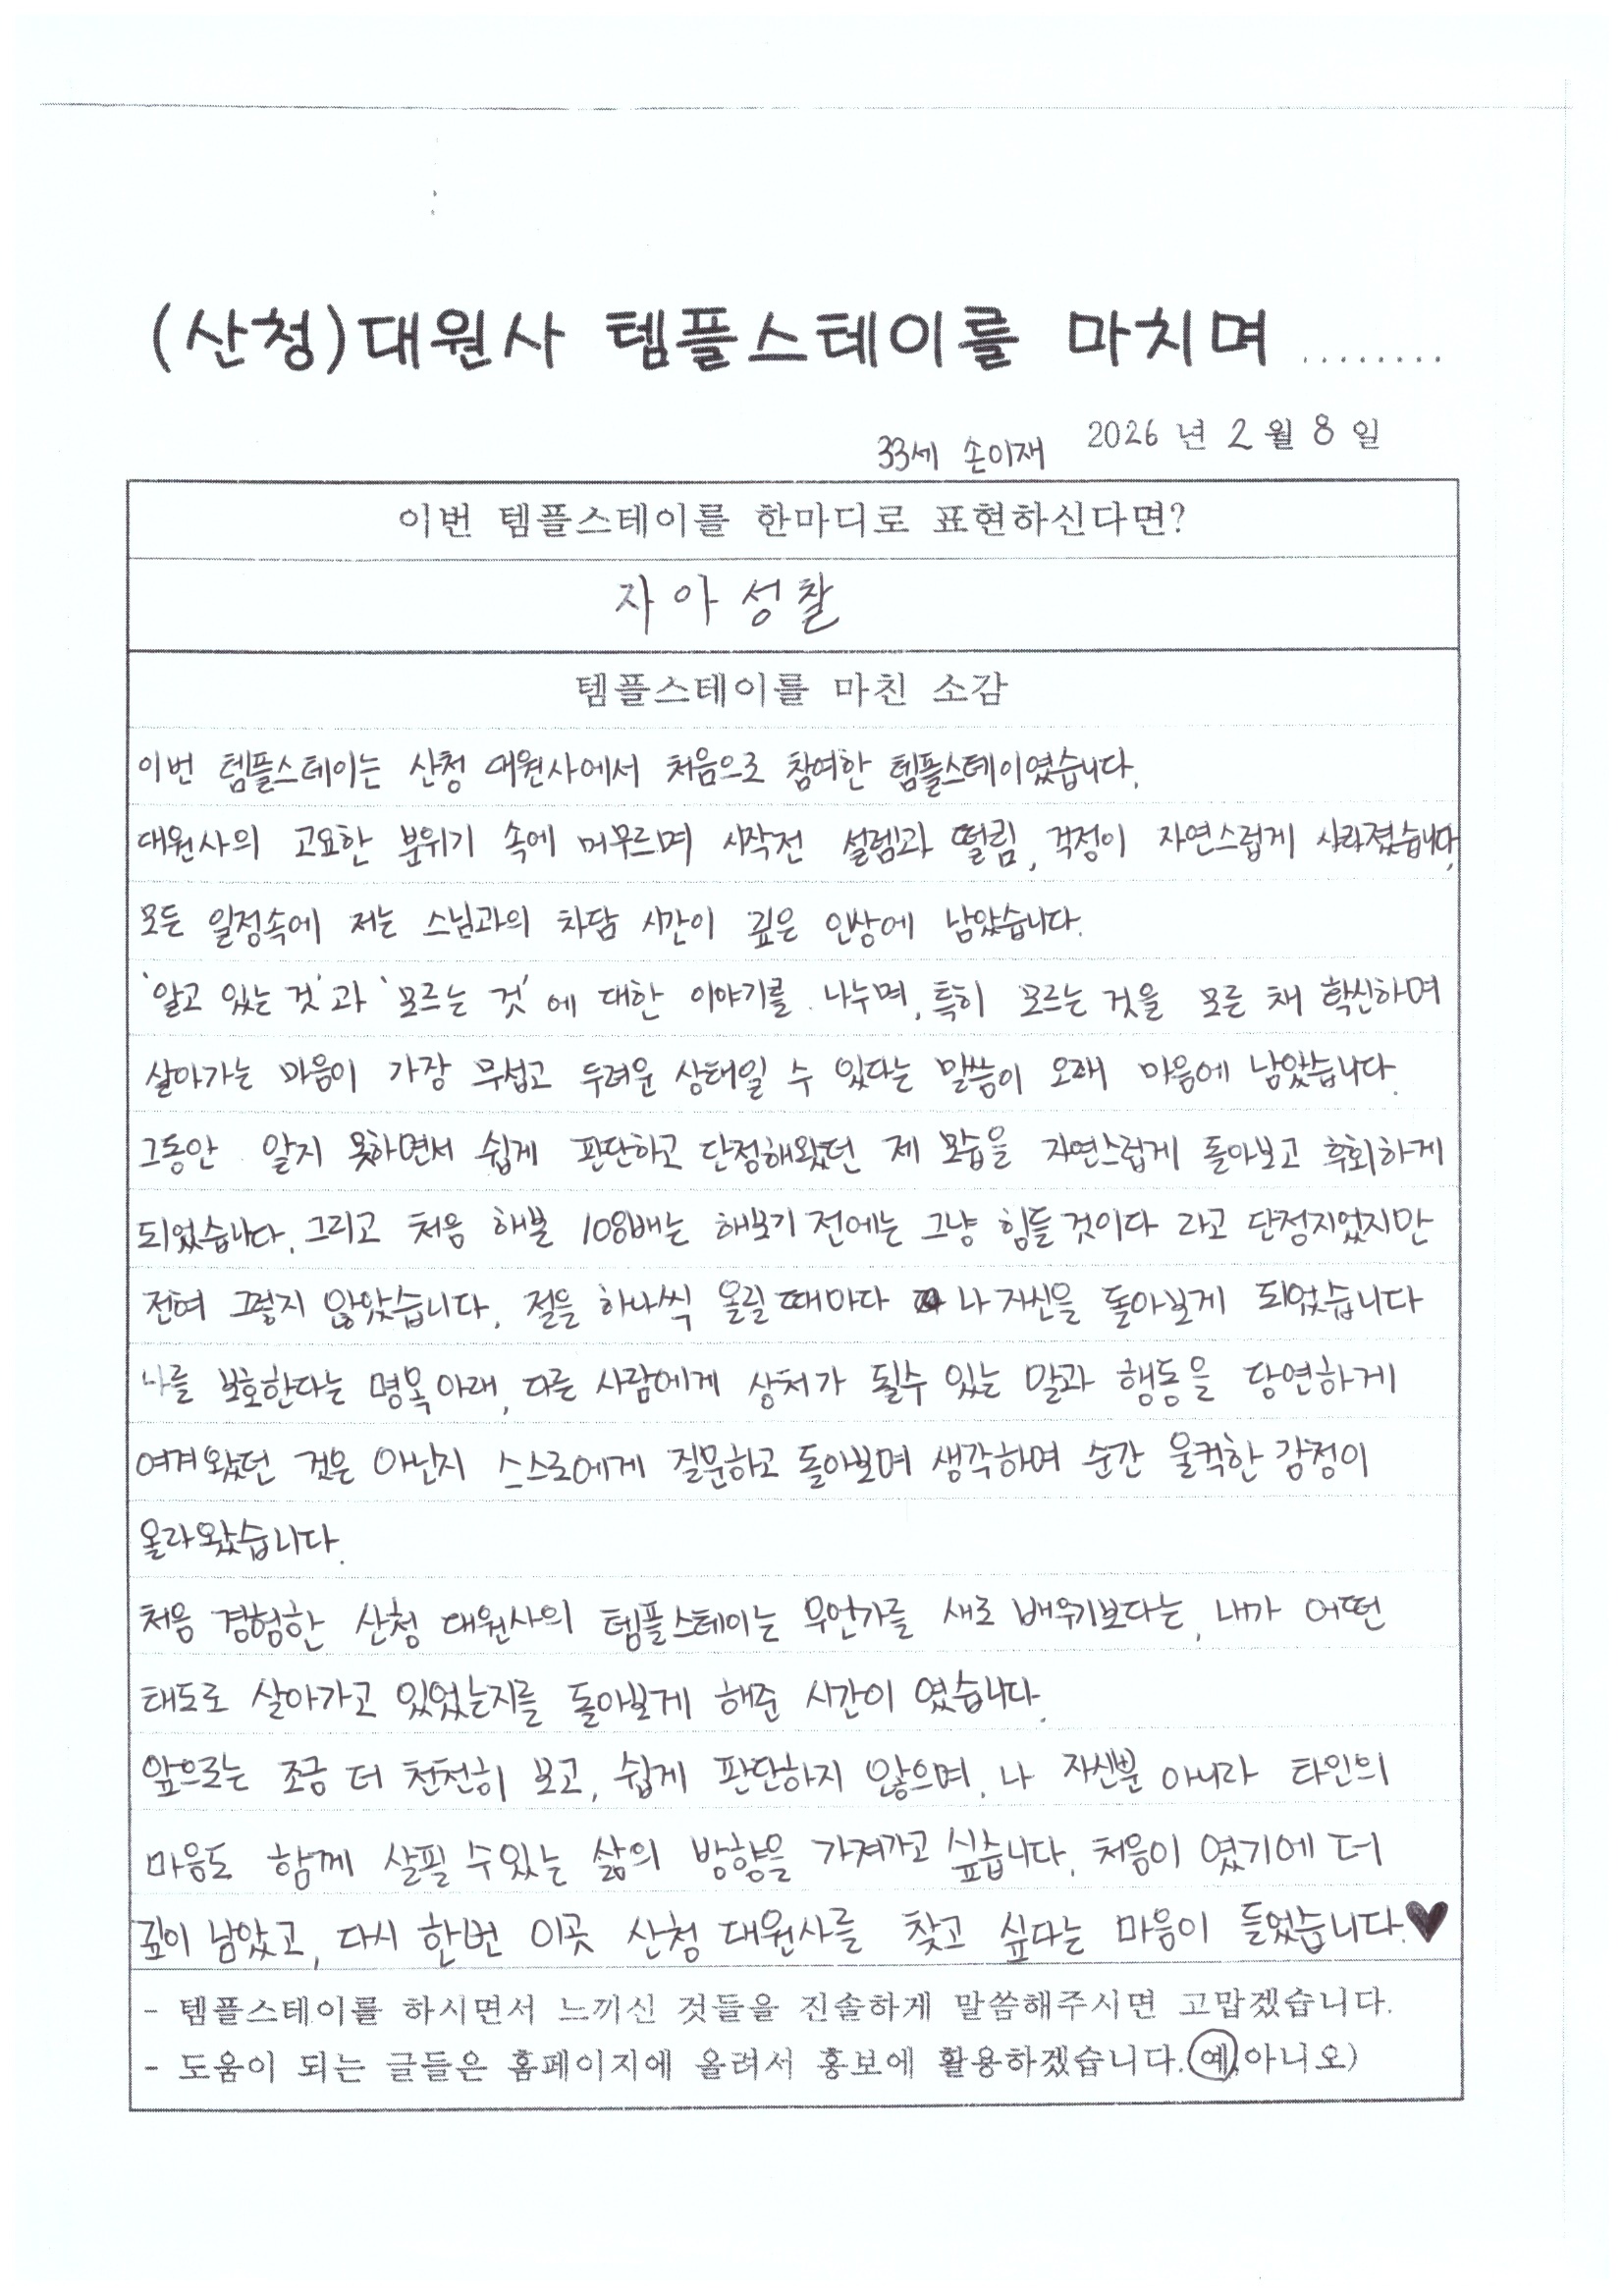 (산청)대원사 템플스테이를 마치며 ........
33세 손이재 2026 년 2 월 8 일
이번 템플스테이를 한마디로 표현하신다면?
자아성찰
템플스테이를 마친 소감
이번 템플스테이는 산청 대원사에서 처음으로 참여한 템플스테이였습니다.
대원사의 고요한 분위기 속에 머무르며 시작전 설렘과 떨림, 걱정이 자연스럽게 사라졌습니다.
모든 일정속에 저는 스님과의 차담 시간이 깊은 인상에 남았습니다.
'알고 있는 것'과 '모르는 것'에 대한 이야기를 나누며, 특히 모르는 것을 모른 채 확신하며
살아가는 마음이 가장 무섭고 두려운 상태일 수 있다는 말씀이 오래 마음에 남았습니다.
그동안 알지 못하면서 쉽게 판단하고 단정해왔던 제 모습을 자연스럽게 돌아보고 후회하게
되었습니다. 그리고 처음 해본 108배는 해보기 전에는 그냥 힘들 것이다 라고 단정지었지만
전혀 그렇지 않았습니다. 절을 하나씩 올릴 때마다 나 자신을 돌아보게 되었습니다
나를 보호한다는 명목 아래, 다른 사람에게 상처가 될수 있는 말과 행동을 당연하게
여겨왔던 것은 아닌지 스스로에게 질문하고 돌아보며 생각하며 순간 울컥한 감정이
올라왔습니다.
처음 경험한 산청 대원사의 템플스테이는 무언가를 새로 배우기보다는, 내가 어떤
태도로 살아가고 있었는지를 돌아보게 해준 시간이 였습니다.
앞으로는 조금 더 천천히 보고, 쉽게 판단하지 않으며, 나 자신뿐 아니라 타인의
마음도 함께 살필 수있는 삶의 방향을 가져가고 싶습니다. 처음이 였기에 더
깊이 남았고, 다시 한번 이곳 산청 대원사를 찾고 싶다는 마음이 들었습니다.♥
- 템플스테이를 하시면서 느끼신 것들을 진솔하게 말씀해주시면 고맙겠습니다.
- 도움이 되는 글들은 홈페이지에 올려서 홍보에 활용하겠습니다.(예,아니오)